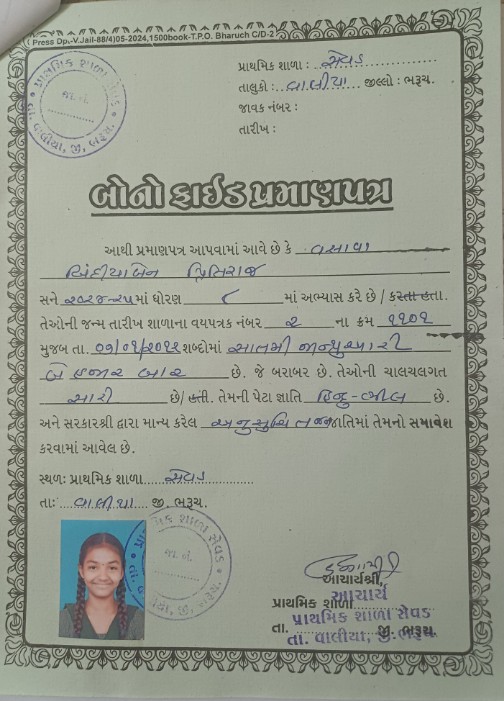 ( Press Dp.-V.Jail-88/4)05-2024,1500book-T.P.O. Bharuch C/D-2
પ્રાથમિક શાળા : સેવડ
તાલુકો : વાલીયા જીલ્લો : ભરૂચ.
જાવક નંબર :
તારીખ :
પ્રાથમિક શાળા સેવડ
તા. વાલીયા, જી. ભરૂચ.
બોનો ફાઈડ પ્રમાણપત્ર
આથી પ્રમાણપત્ર આપવામાં આવે છે કે વસાવા
પ્રિતિરાજ
સને ૨૦૨૪-૨૫માં ધોરણ ૮ માં અભ્યાસ કરે છે / કરતા હતા.
તેઓની જન્મ તારીખ શાળાના વયપત્રક નંબર ૨ ના ક્રમ ૧૧૦૧
મુજબ તા. ૦૭/૦૧/૨૦૧૨ શબ્દોમાં સાતમી જાન્યુઆરી
બે હજાર બાર છે. જે બરાબર છે. તેઓની ચાલચલગત
સારી છે/ હતી. તેમની પેટા જ્ઞાતિ હિન્દુ-ભીલ છે.
અને સરકારશ્રી દ્વારા માન્ય કરેલ અનુસુચિત જનજાતિમાં તેમનો સમાવેશ
કરવામાં આવેલ છે.
સ્થળ: પ્રાથમિક શાળા સેવડ
તા: વાલીયા જી. ભરૂચ.
આચાર્યશ્રી,
આચાર્ય
પ્રાથમિક શાળા
પ્રાથમિક શાળા સેવડ
તા. જી. ભરૂચ.
તા. વાલીયા, જી. ભરૂચ